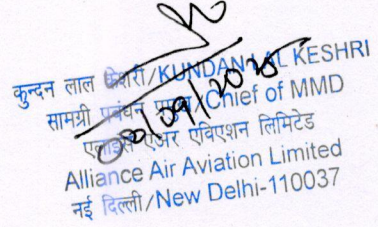 कुन्दन लाल केशरी/KUNDAN LAL KESHRI
सामग्री प्रबंधन /Chief of MMD
एलाइंस एअर एविएशन लिमिटेड
Alliance Air Aviation Limited
नई दिल्ली/New Delhi-110037